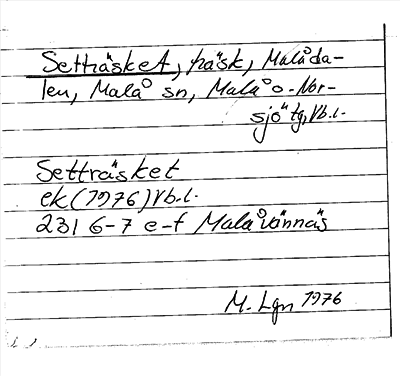 Setträsket, träsk, Malåda-
len, Malå sn, Malå o. Nor-
sjö tg, Vb.l.
Setträsket
ek (1976) Vb.l.
231 6-7 e-f Malåvännäs
M. Lgn 1976